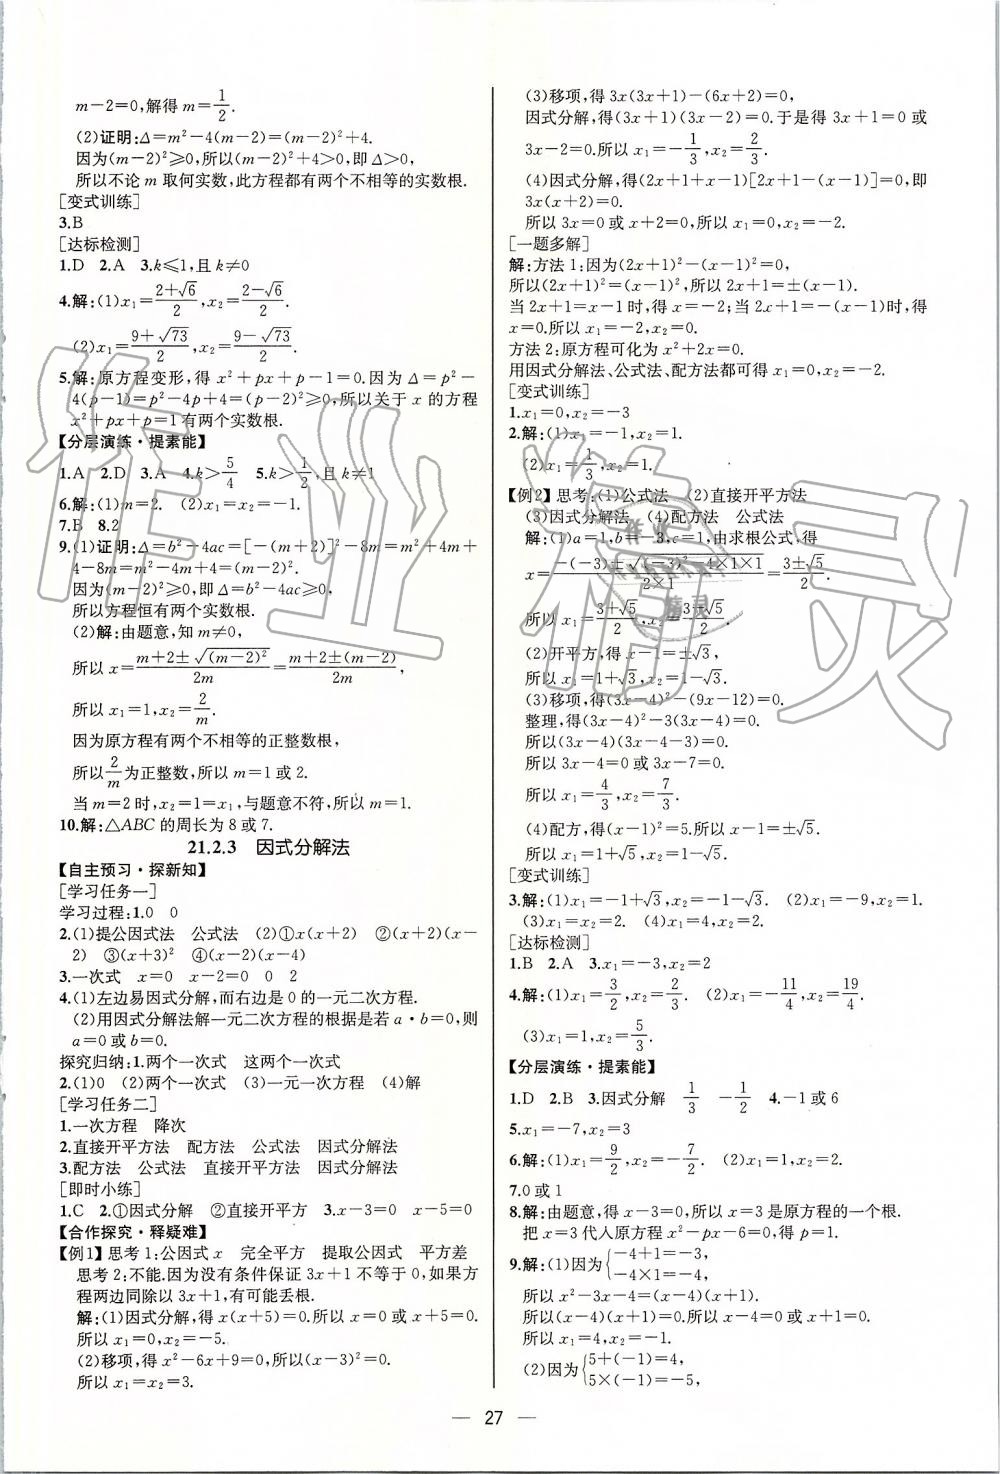 m-2=0,解得 m=1/2.
(2)证明:Δ=m²-4(m-2)=(m-2)²+4.
因为(m-2)²≥0,所以(m-2)²+4>0,即Δ>0,
所以不论 m 取何实数,此方程都有两个不相等的实数根.
[变式训练]
3.B
[达标检测]
1.D 2.A 3.k≤1,且 k≠0
4.解:(1)x₁=(2+√6)/2,x₂=(2-√6)/2.
(2)x₁=(9+√73)/2,x₂=(9-√73)/2.
5.解:原方程变形,得 x²+px+p-1=0.因为 Δ=p²-
4(p-1)=p²-4p+4=(p-2)²≥0,所以关于 x 的方程
x²+px+p=1有两个实数根.
【分层演练·提素能】
1.A 2.D 3.A 4.k>5/4 5.k>1/2,且 k≠1
6.解:(1)m=2. (2)x₁=x₂=-1.
7.B 8.2
9.(1)证明:Δ=b²-4ac=[-(m+2)]²-8m=m²+4m+
4-8m=m²-4m+4=(m-2)².
因为(m-2)²≥0,即Δ=b²-4ac≥0,
所以方程恒有两个实数根.
(2)解:由题意,知 m≠0,
所以 x=(m+2±√(m-2)²)/2m=(m+2±(m-2))/2m,
所以 x₁=1,x₂=2/m.
因为原方程有两个不相等的正整数根,
所以2/m为正整数,所以 m=1或2.
当 m=2时,x₂=1=x₁,与题意不符,所以 m=1.
10.解:△ABC 的周长为8或7.
21.2.3 因式分解法
【自主预习·探新知】
[学习任务一]
学习过程:1.0 0
2.(1)提公因式法 公式法 (2)①x(x+2) ②(x+2)(x-
2) ③(x+3)² ④(x-2)(x-4)
3.一次式 x=0 x-2=0 0 2
4.(1)左边易因式分解,而右边是0的一元二次方程.
(2)用因式分解法解一元二次方程的根据是若 a·b=0,则
a=0或 b=0.
探究归纳:1.两个一次式 这两个一次式
2.(1)0 (2)两个一次式 (3)一元一次方程 (4)解
[学习任务二]
1.一次方程 降次
2.直接开平方法 配方法 公式法 因式分解法
3.配方法 公式法 直接开平方法 因式分解法
[即时小练]
1.C 2.①因式分解 ②直接开平方 3.x-3=0 x-5=0
【合作探究·释疑难】
【例1】思考1:公因式 x 完全平方 提取公因式 平方差
思考2:不能.因为没有条件保证3x+1不等于0,如果方
程两边同除以3x+1,有可能丢根.
解:(1)因式分解,得 x(x+5)=0.所以 x=0或 x+5=0.
所以 x₁=0,x₂=-5.
(2)移项,得 x²-6x+9=0,所以(x-3)²=0.
所以 x₁=x₂=3.
(3)移项,得3x(3x+1)-(6x+2)=0,
因式分解,得(3x+1)(3x-2)=0.于是得3x+1=0或
3x-2=0.所以 x₁=-1/3,x₂=2/3.
(4)因式分解,得(2x+1+x-1)[2x+1-(x-1)]=0,即
3x(x+2)=0.
所以3x=0或 x+2=0,所以 x₁=0,x₂=-2.
[一题多解]
解:方法1:因为(2x+1)²-(x-1)²=0,
所以(2x+1)²=(x-1)²,所以2x+1=±(x-1).
当2x+1=x-1时,得 x=-2;当2x+1=-(x-1)时,得
x=0.所以 x₁=-2,x₂=0.
方法2:原方程可化为 x²+2x=0.
用因式分解法、公式法、配方法都可得 x₁=0,x₂=-2.
[变式训练]
1.x₁=0,x₂=-3
2.解:(1)x₁=-1,x₂=1.
(2)x₁=1/3,x₂=1.
【例2】思考:(1)公式法 (2)直接开平方法
(3)因式分解法 (4)配方法 公式法
解:(1)a=1,b=-3,c=1,由求根公式,得
x=(-(-3)±√((-3)²-4×1×1))/(2×1)=(3±√5)/2.
所以 x₁=(3+√5)/2,x₂=(3-√5)/2.
(2)开平方,得 x-1=±√3,
所以 x₁=1+√3,x₂=1-√3.
(3)移项,得(3x-4)²-(9x-12)=0.
整理,得(3x-4)²-3(3x-4)=0.
所以(3x-4)(3x-4-3)=0.
所以3x-4=0或3x-7=0.
所以 x₁=4/3,x₂=7/3.
(4)配方,得(x-1)²=5.所以 x-1=±√5.
所以 x₁=1+√5,x₂=1-√5.
[变式训练]
3.解:(1)x₁=-1+√3,x₂=-1-√3. (2)x₁=-9,x₂=1.
(3)x₁=x₂=2. (4)x₁=4,x₂=2.
[达标检测]
1.B 2.A 3.x₁=-3,x₂=2
4.解:(1)x₁=3/2,x₂=2/3. (2)x₁=-11/4,x₂=19/4.
(3)x₁=x₂=5/3.
【分层演练·提素能】
1.D 2.B 3.因式分解 1/3 -1/2 4.-1或6
5.x₁=-7,x₂=3
6.解:(1)x₁=9/2,x₂=-7/2. (2)x₁=1,x₂=2.
7.0或1
8.解:由题意,得-6=0,所以 x=3是原方程的一个根.
把 x=3代人原方程 x²-px-6=0,得 p=1.
9.解:(1)因为{-4+1=-3,
-4×1=-4,
所以 x²-3x-4=(x-4)(x+1).
所以(x-4)(x+1)=0.
所以 x₁=4,x₂=-1.
(2)因为{5+(-1)=4,
5×(-1)=-5,
— 27 —
作业精灵